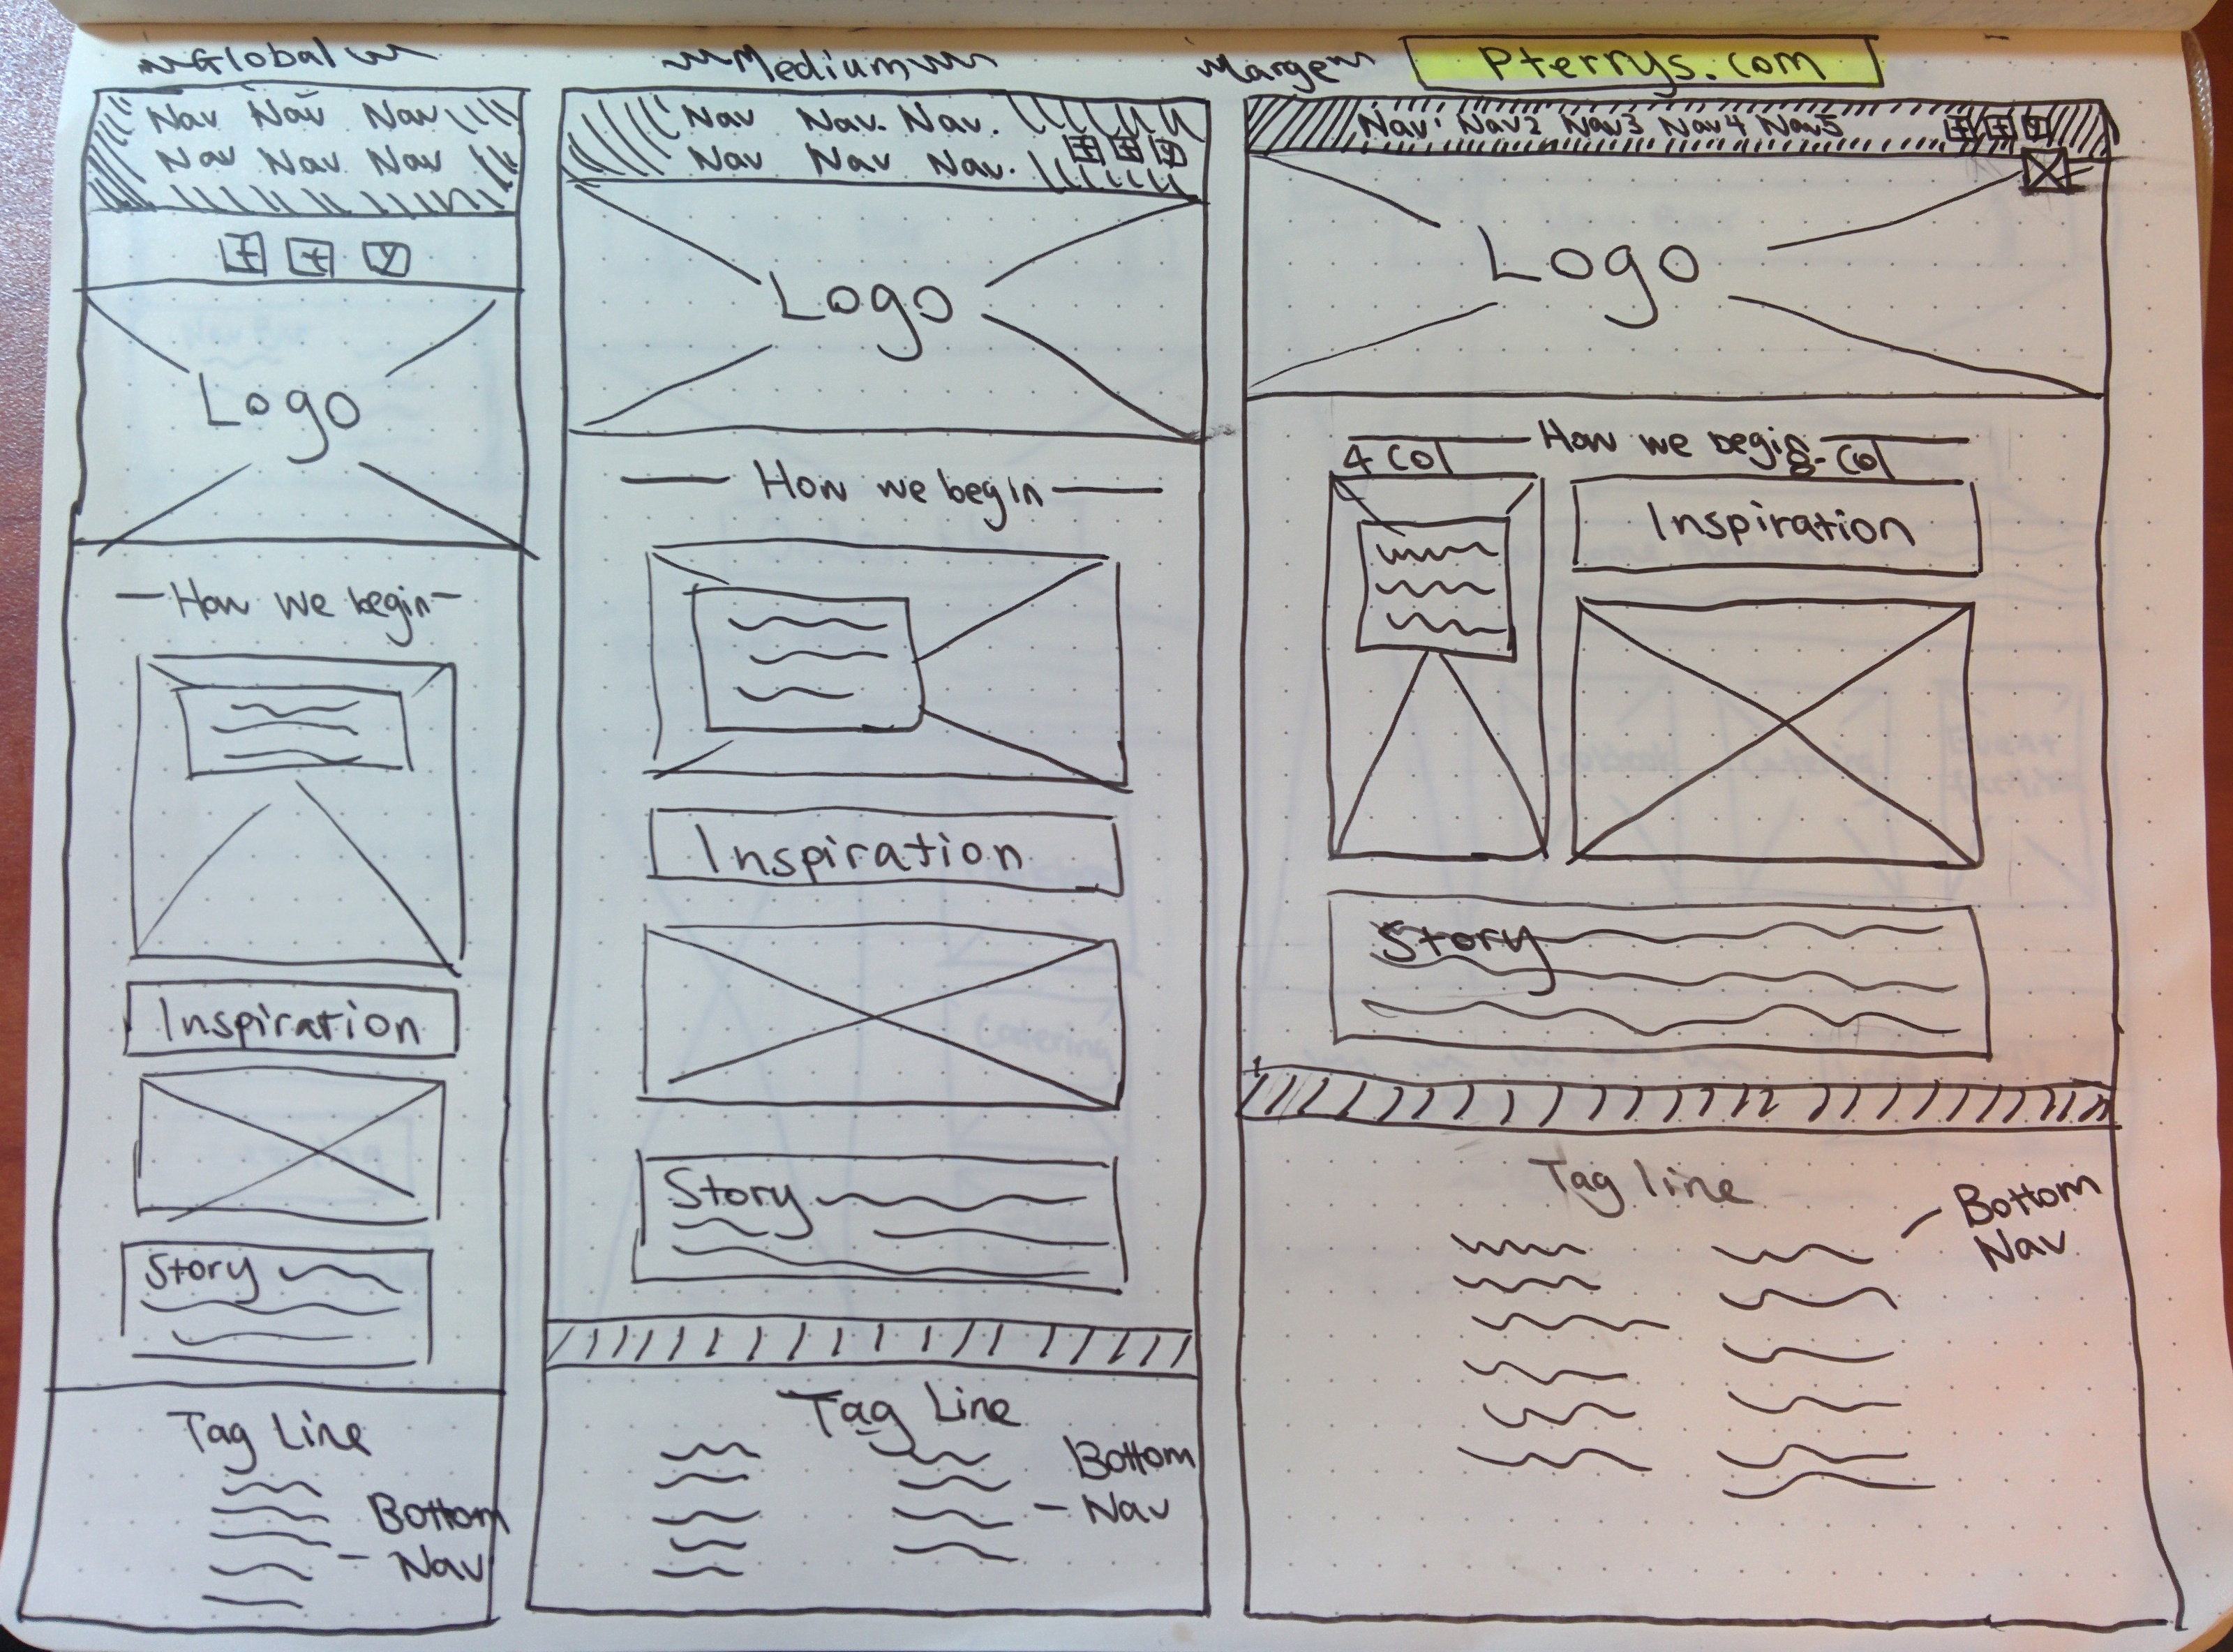 Global
Nav Nav Nav
Nav Nav Nav
Logo
How we begin
Inspiration
Story
Tag Line
Bottom
Nav
Medium
Nav Nav. Nav.
Nav Nav Nav.
Logo
How we begin
Inspiration
Story
Tag Line
Bottom
Nav
Large
Pterrys.com
Nav1 Nav2 Nav3 Nav4 Nav5
Logo
How we begin
4 Col
8-Col
Inspiration
Story
Tag line
Bottom
Nav